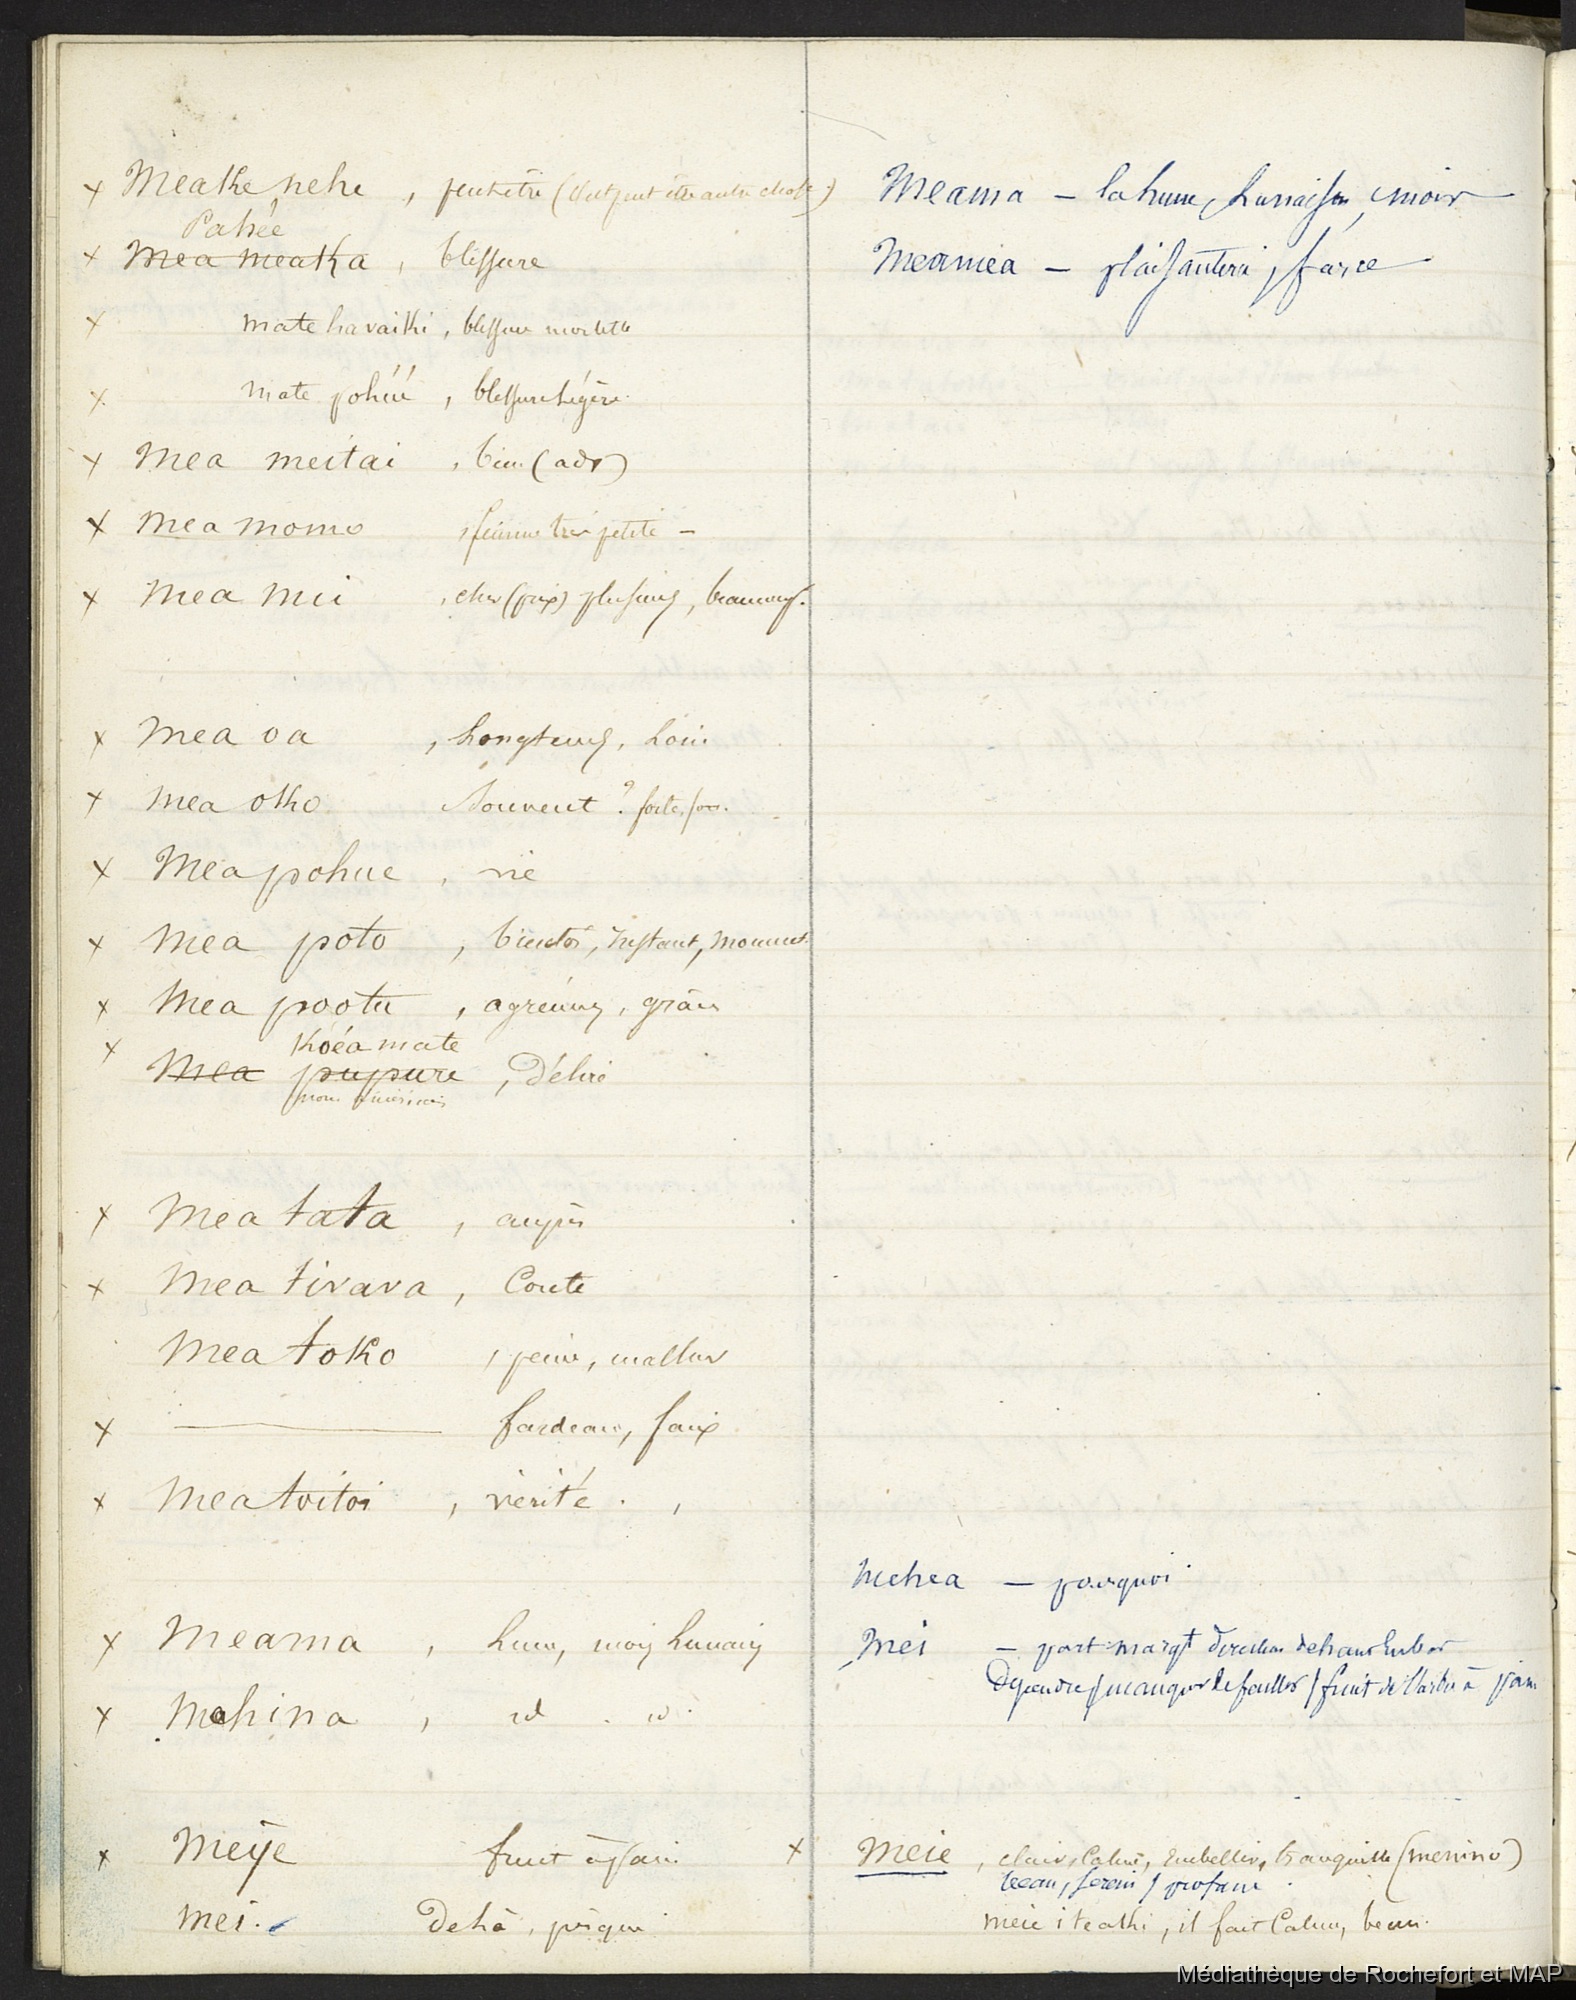 x Meake nehe , peutêtre (c'est peut être autre chose)
Pahée
x Mea meaka , blessure
x mate havaiki , blessure mortelle
x mate pohúú , blessure légère.
x Mea meitai , bien (adv)
x Mea momo , femme très petite –
x Mea mui , cher (prix) plusieurs, beaucoup.
x Mea oa , Longtemps, Loin
x Mea oko Souvent ? forte
x Mea pohue , vie
x Mea poto , bientôt, instant, moment
x Mea pootu , agrément, grâce
x Koéa mate
Mea pupure , Délire
x Mea tata , auprès
x Mea tivava , Conte
Mea toko , peine, malheur
x fardeau, faix
x Mea toitoi , vérité . ,
x Meama , Lune, mois Lunaire
x Mahina , id . id .
x Meïje fruit à pain
Mei . Delà , presque
Meama — la Lune, Lunaison, mois
Meamea — plaisanterie, farce
Mehea — pourquoi
Mei — part marqt direction de haut en bas
Dependre / manquer de fouller / fruit de l'arbre à pain
x Meie , clair, Calme, Embellir, tranquille (menino)
beau, serein / profane .
meie i te aki , il fait Calme, beau .
Médiathèque de Rochefort et MAP